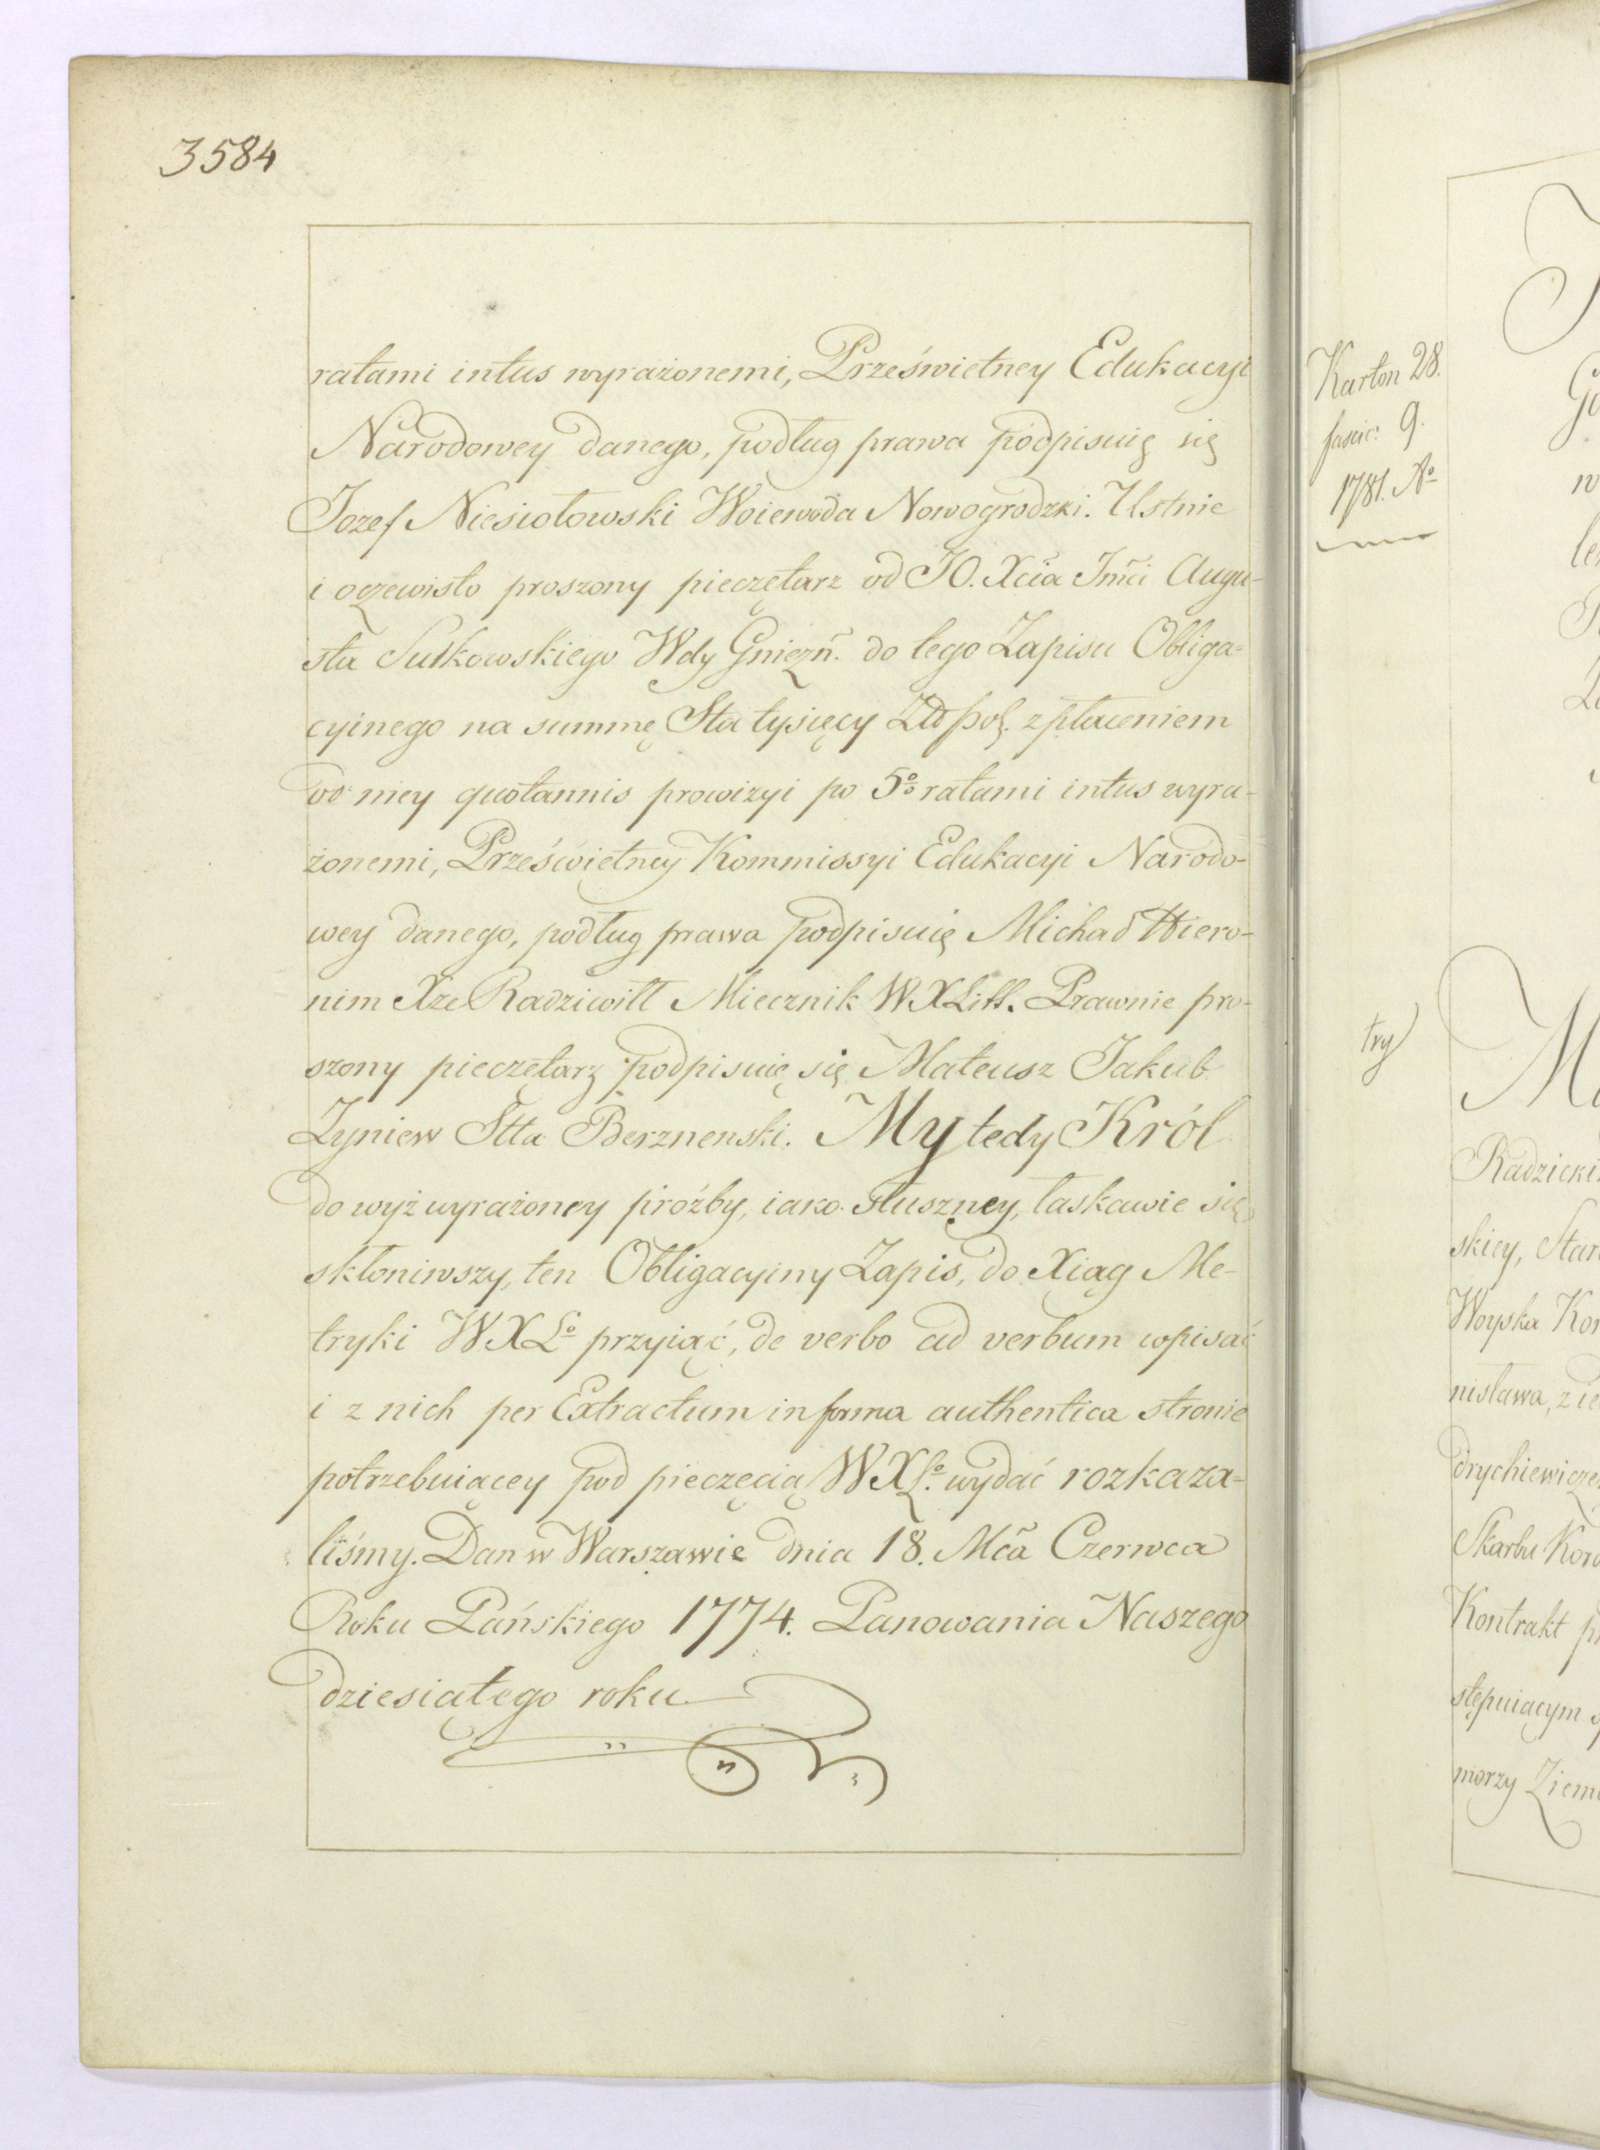 3584
ratami intus wyrażonemi, Prześwietney Edukacyi
Narodowey danego, podług prawa podpisuię się
Jozef Niesiołowski Woiewoda Nowogrodzki. Ustnie
i oczewisto proszony pieczętarz od JO. Xcia Jmci Augu-
sta Sułkowskiego Wdy Gniezń. do tego Zapisu Obliga-
cyinego na summę Sta tysięcy Złł pol. z płaceniem
od niey quotannis prowizyi po 5% ratami intus wyra-
żonemi, Prześwietney Kommissyi Edukacyi Narodo-
wey danego, podług prawa podpisuię Michał Hiero-
nim Xże Radziwiłł Miecznik W X Litt. Prawnie pro-
szony pieczętarz podpisuię się Mateusz Jakub
Zyniew Stta Berznenski. My tedy Król
do wyż wyrażoney próźby, iako słuszney, łaskawie się
skłoniwszy, ten Obligacyiny Zapis, do Xiąg Me-
tryki W X Lo przyiąć, de verbo ad verbum wpisać
i z nich per Extractum in forma authentica stronie
potrzebuiącey pod pieczęcią W X Lo. wydać rozkaza-
liśmy. Dan w Warszawie dnia 18. Mca Czerwca
Roku Pańskiego 1774. Panowania Naszego
dziesiątego roku
Karton 28.
fascic: 9.
1781. No
try
Radzicki
skiey, Star
Woyska Kor
nisława, z ie
drychiewicze
Skarbu Koro
Kontrakt pr
stępuiącym
morzy Ziem